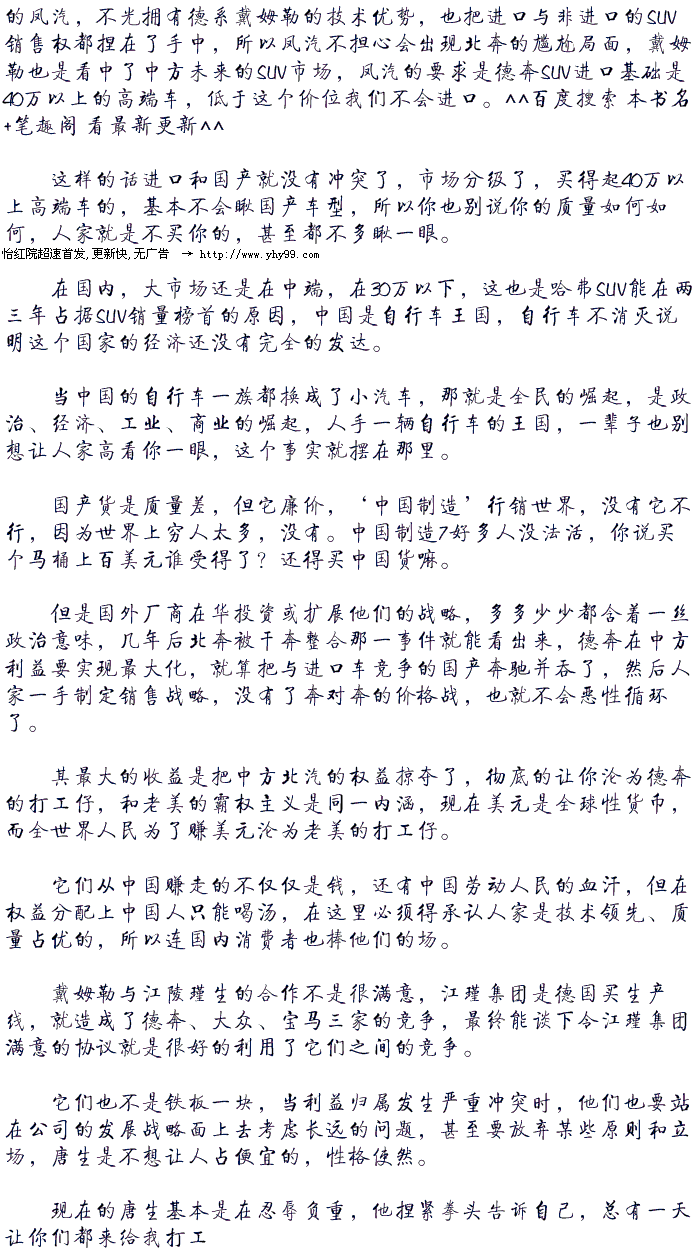 的凤汽，不光拥有德系戴姆勒的技术优势，也把进口与非进口的SUV
销售权都捏在了手中，所以凤汽不担心会出现北奔的尴尬局面，戴姆
勒也是看中了中方未来的SUV市场，凤汽的要求是德奔SUV进口基础是
40万以上的高端车，低于这个价位我们不会进口。^^百度搜索 本书名
+笔趣阁 看最新更新^^
这样的话进口和国产就没有冲突了，市场分级了，买得起40万以
上高端车的，基本不会瞅国产车型，所以你也别说你的质量如何如
何，人家就是不买你的，甚至都不多瞅一眼。
怡红院超速首发,更新快,无广告 → http://www.yhy99.com
在国内，大市场还是在中端，在30万以下，这也是哈弗SUV能在两
三年占据SUV销量榜首的原因，中国是自行车王国，自行车不消灭说
明这个国家的经济还没有完全的发达。
当中国的自行车一族都换成了小汽车，那就是全民的崛起，是政
治、经济、工业、商业的崛起，人手一辆自行车的王国，一辈子也别
想让人家高看你一眼，这个事实就摆在那里。
国产货是质量差，但它廉价，‘中国制造’行销世界，没有它不
行，因为世界上穷人太多，没有。中国制造7好多人没法活，你说买
个马桶上百美元谁受得了？还得买中国货嘛。
但是国外厂商在华投资或扩展他们的战略，多多少少都含着一丝
政治意味，几年后北奔被干奔整合那一事件就能看出来，德奔在中方
利益要实现最大化，就算把与进口车竞争的国产奔驰并吞了，然后人
家一手制定销售战略，没有了奔对奔的价格战，也就不会恶性循环
了。
其最大的收益是把中方北汽的权益掠夺了，彻底的让你沦为德奔
的打工仔，和老美的霸权主义是同一内涵，现在美元是全球性货币，
而全世界人民为了赚美元沦为老美的打工仔。
它们从中国赚走的不仅仅是钱，还有中国劳动人民的血汗，但在
权益分配上中国人只能喝汤，在这里必须得承认人家是技术领先、质
量占优的，所以连国内消费者也捧他们的场。
戴姆勒与江陵瑾生的合作不是很满意，江瑾集团是德国买生产
线，就造成了德奔、大众、宝马三家的竞争，最终能谈下令江瑾集团
满意的协议就是很好的利用了它们之间的竞争。
它们也不是铁板一块，当利益归属发生严重冲突时，他们也要站
在公司的发展战略面上去考虑长远的问题，甚至要放弃某些原则和立
场，唐生是不想让人占便宜的，性格使然。
现在的唐生基本是在忍辱负重，他捏紧拳头告诉自己，总有一天
让你们都来给我打工